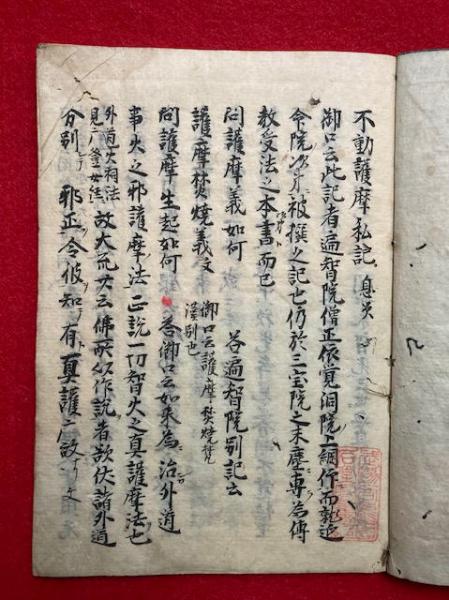 不動護摩私記 息災
御口云此記者遍智院僧正依覚洞院上綱作而就近
令院次第被撰之記也仍於三宝院之末塵専為傳
教受法之本書而已
問護摩義如何 答遍智院別記云
護摩焚焼義文 御口云護摩焚焼梵漢別也
問護摩生起如何 答御口云如来為治外道
事火之邪護摩法正説一切智火之真護摩法也
外道火祠法 故大疏廿云佛所以作説者欲伏諸外道
分別邪正令彼知有真護摩故文